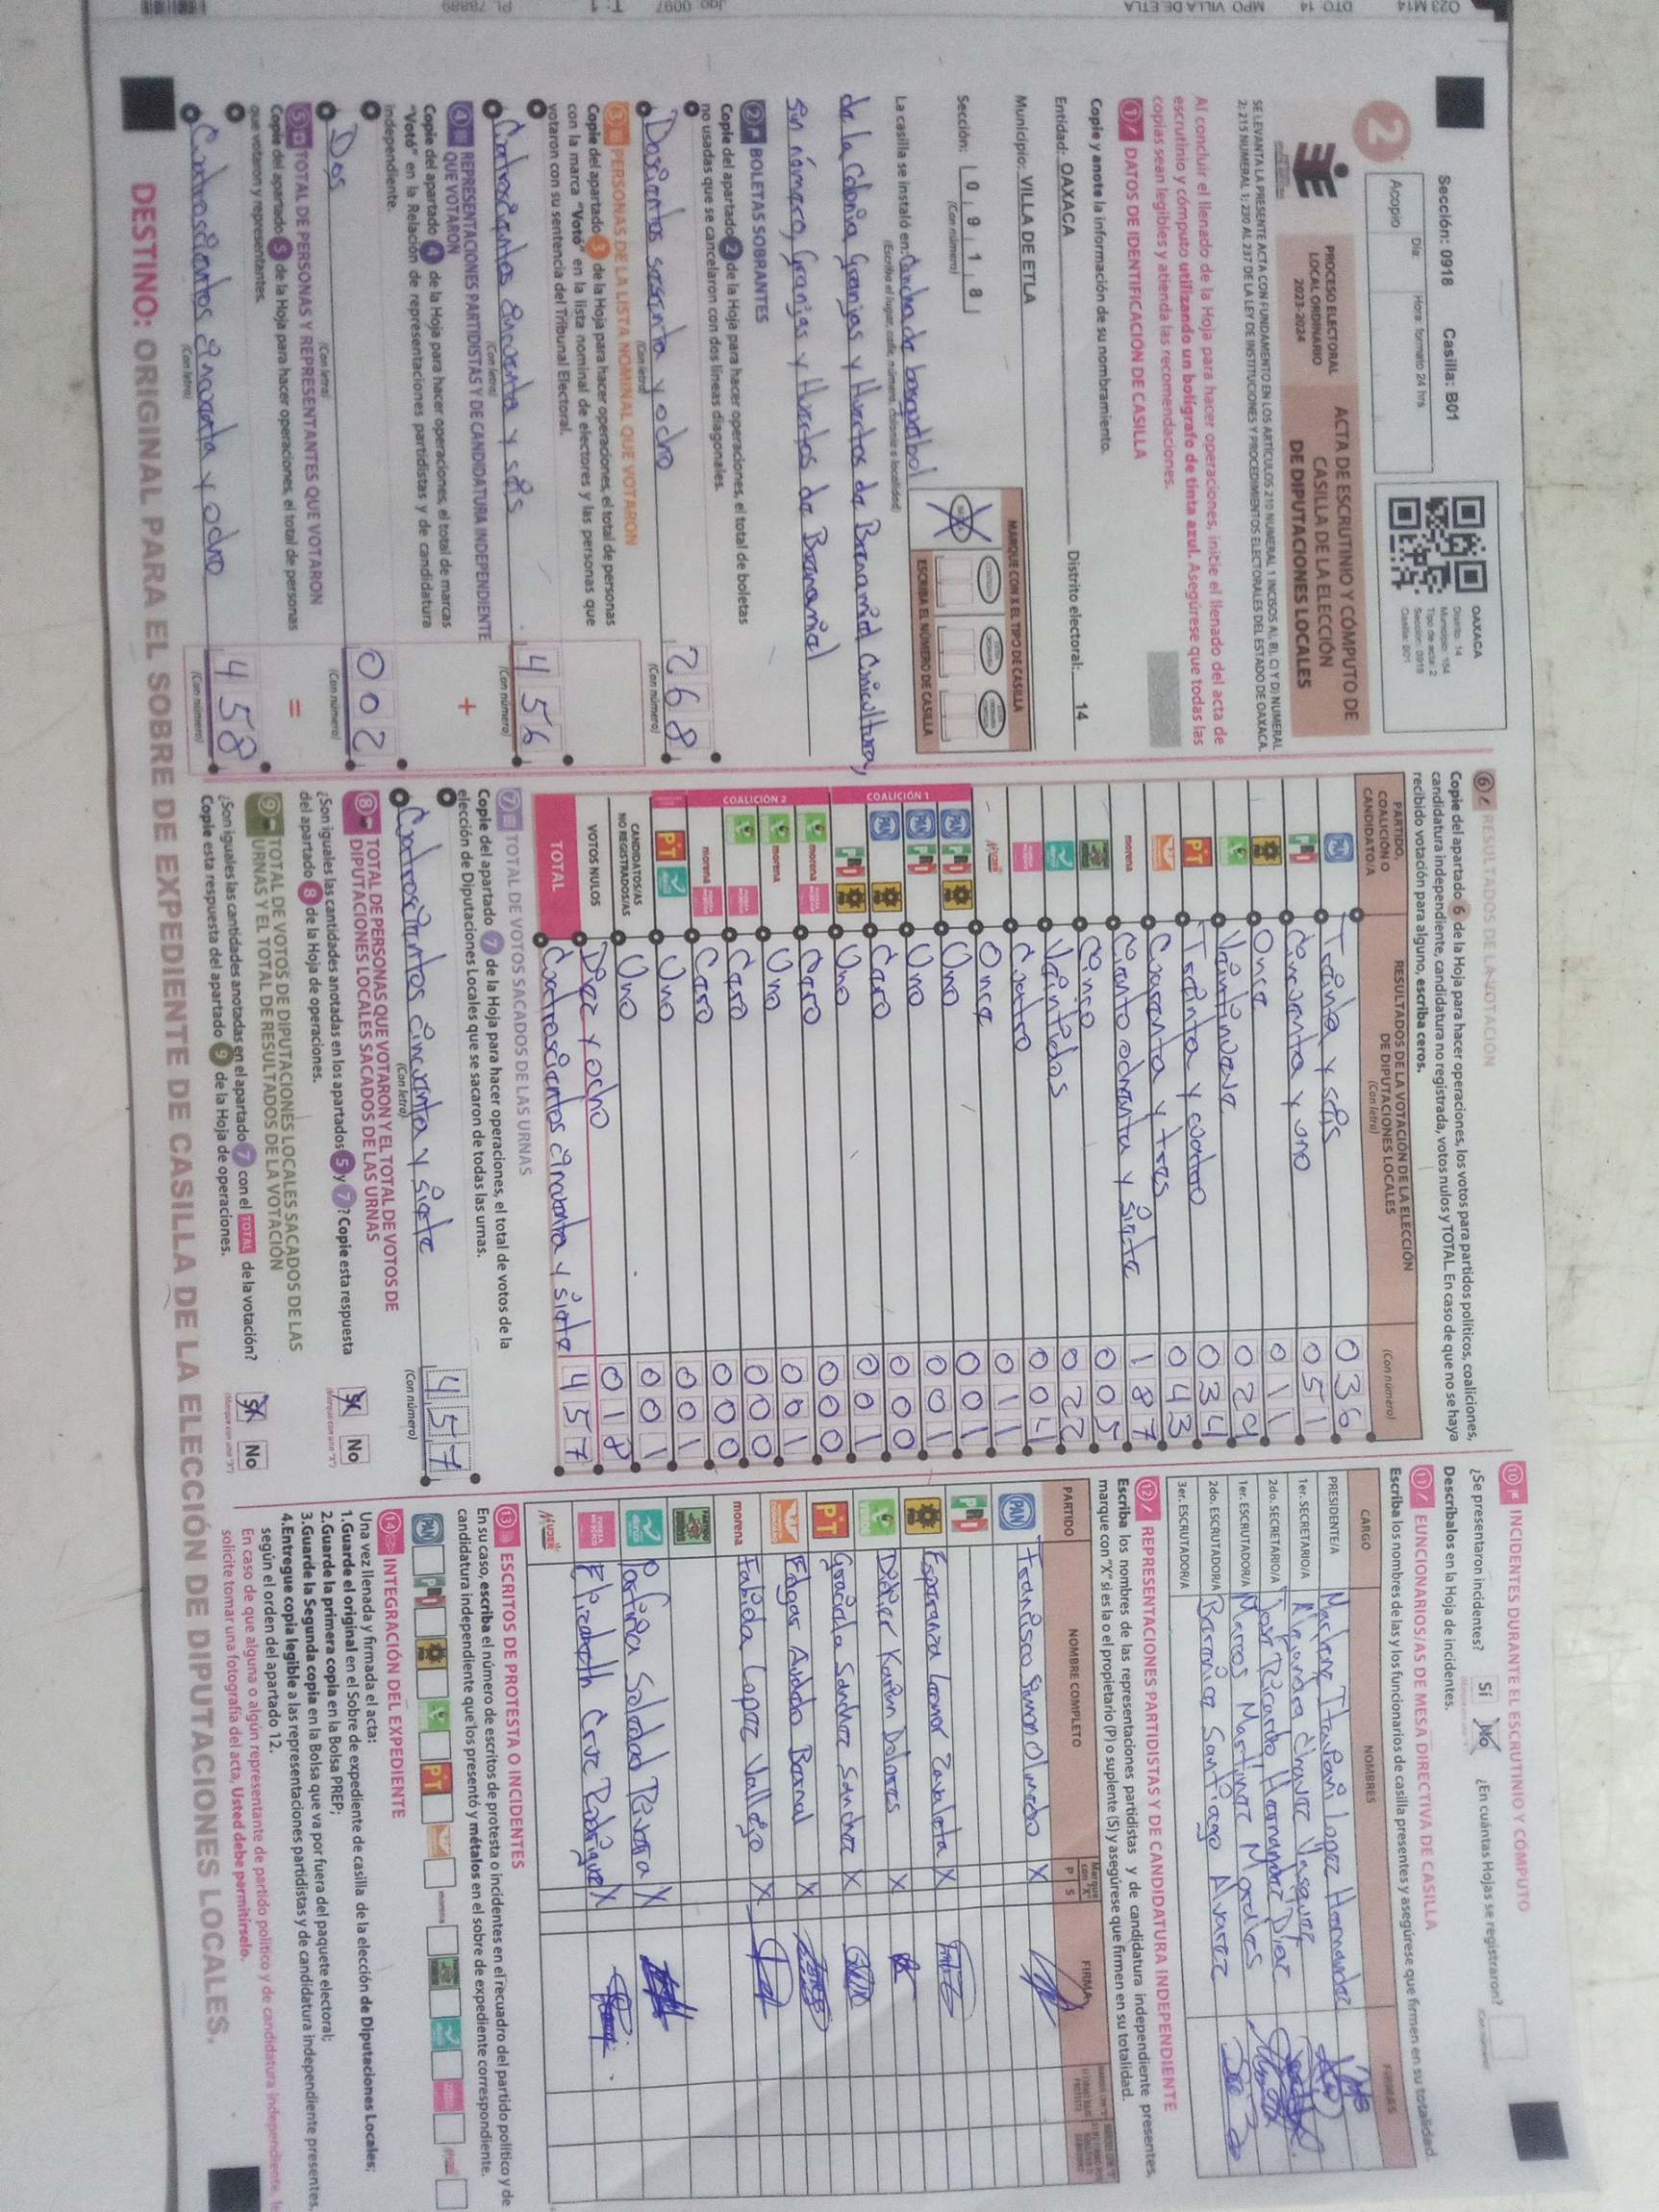 Sección: 0918 Casilla: B01
2
Acopio
Día:
Hora: formato 24 hrs
OAXACA
Distrito: 14
Municipio: 164
Tipo de acta: 2
Sección: 0918
Casilla: B01
PROCESO ELECTORAL
LOCAL ORDINARIO
2023-2024
ACTA DE ESCRUTINIO Y CÓMPUTO DE
CASILLA DE LA ELECCIÓN
DE DIPUTACIONES LOCALES
SE LEVANTA LA PRESENTE ACTA CON FUNDAMENTO EN LOS ARTÍCULOS 210 NUMERAL 1 INCISOS A), B), C) Y D) NUMERAL
2; 215 NUMERAL 1; 230 AL 237 DE LA LEY DE INSTITUCIONES Y PROCEDIMIENTOS ELECTORALES DEL ESTADO DE OAXACA.
Al concluir el llenado de la Hoja para hacer operaciones, inicie el llenado del acta de
escrutinio y cómputo utilizando un bolígrafo de tinta azul. Asegúrese que todas las
copias sean legibles y atienda las recomendaciones.
1 DATOS DE IDENTIFICACIÓN DE CASILLA
Copie y anote la información de su nombramiento.
Entidad: OAXACA Distrito electoral: 14
Municipio: VILLA DE ETLA
Sección: 0 9 1 8
(Con número)
MARQUE CON X EL TIPO DE CASILLA
ESCRIBA EL NÚMERO DE CASILLA
La casilla se instaló en: Cancha de basquetbol
(Escriba el lugar, calle, número, colonia o localidad)
de la Colonia Granjas y Huertos de Brenamiel
sin número, Granjas y Huertos de Brenamiel
2 BOLETAS SOBRANTES
Copie del apartado 2 de la Hoja para hacer operaciones, el total de boletas
no usadas que se cancelaron con dos líneas diagonales.
Doscientos sesenta y ocho 268
(Con letra) (Con número)
3 PERSONAS DE LA LISTA NOMINAL QUE VOTARON
Copie del apartado 3 de la Hoja para hacer operaciones, el total de personas
con la marca "Votó" en la lista nominal de electores y las personas que
votaron con su sentencia del Tribunal Electoral.
Cuatrocientos cincuenta y seis 456
(Con letra) (Con número)
4 REPRESENTACIONES PARTIDISTAS Y DE CANDIDATURA INDEPENDIENTE
QUE VOTARON
+
Copie del apartado 4 de la Hoja para hacer operaciones, el total de marcas
"Votó" en la Relación de representaciones partidistas y de candidatura
independiente.
Dos 002
(Con letra) (Con número)
5 TOTAL DE PERSONAS Y REPRESENTANTES QUE VOTARON
=
Copie del apartado 5 de la Hoja para hacer operaciones, el total de personas
que votaron y representantes.
Cuatrocientos cincuenta y ocho 458
(Con letra) (Con número)
6 RESULTADOS DE LA VOTACIÓN
Copie del apartado 6 de la Hoja para hacer operaciones, los votos para partidos políticos, coaliciones,
candidatura independiente, candidatura no registrada, votos nulos y TOTAL. En caso de que no se haya
recibido votación para alguno, escriba ceros.
PARTIDO,
COALICIÓN O
CANDIDATO/A
RESULTADOS DE LA VOTACIÓN DE LA ELECCIÓN
DE DIPUTACIONES LOCALES
(Con letra)
(Con número)
PAN Treinta y seis 036
PRI Cincuenta y uno 051
PRD Once 011
Veintinueve 029
PT Treinta y cuatro 034
Cuarenta y tres 043
morena Ciento ochenta y siete 187
Cinco 005
Veintidos 022
Cuatro 004
Once 011
COALICIÓN 1
PAN PRI PRD Uno 001
PAN PRI Uno 001
PAN PRD Cero 000
PRI PRD Uno 001
COALICIÓN 2
morena Cero 000
morena Uno 001
Cero 000
morena Cero 000
PT Uno 001
CANDIDATOS/AS
NO REGISTRADOS/AS Uno 001
VOTOS NULOS Diez y ocho 018
TOTAL Cuatrocientos cincuenta y siete 457
7 TOTAL DE VOTOS SACADOS DE LAS URNAS
Copie del apartado 7 de la Hoja para hacer operaciones, el total de votos de la
elección de Diputaciones Locales que se sacaron de todas las urnas.
Cuatrocientos cincuenta y siete 457
(Con letra) (Con número)
8 TOTAL DE PERSONAS QUE VOTARON Y EL TOTAL DE VOTOS DE
DIPUTACIONES LOCALES SACADOS DE LAS URNAS
¿Son iguales las cantidades anotadas en los apartados 5 y 7? Copie esta respuesta
del apartado 8 de la Hoja de operaciones.
Sí No
9 TOTAL DE VOTOS DE DIPUTACIONES LOCALES SACADOS DE LAS
URNAS Y EL TOTAL DE RESULTADOS DE LA VOTACIÓN
¿Son iguales las cantidades anotadas en el apartado 7 con el TOTAL de la votación?
Copie esta respuesta del apartado 9 de la Hoja de operaciones.
Sí No
10 INCIDENTES DURANTE EL ESCRUTINIO Y CÓMPUTO
¿Se presentaron incidentes? Sí No ¿En cuántas Hojas se registraron?
Descríbalos en la Hoja de incidentes.
11 FUNCIONARIOS/AS DE MESA DIRECTIVA DE CASILLA
Escriba los nombres de las y los funcionarios de casilla presentes y asegúrese que firmen en su totalidad.
CARGO NOMBRES FIRMAS
PRESIDENTE/A Marlene Itaipani Lopez Hernandez
1er. SECRETARIO/A Alejandra Chavez Vasquez
2do. SECRETARIO/A Jose Ricardo Hernandez Diaz
1er. ESCRUTADOR/A Marcos Martinez Morales
2do. ESCRUTADOR/A Berenice Santiago Alvarez
3er. ESCRUTADOR/A
12 REPRESENTACIONES PARTIDISTAS Y DE CANDIDATURA INDEPENDIENTE
Escriba los nombres de las representaciones partidistas y de candidatura independiente presentes,
marque con "X" si es la o el propietario (P) o suplente (S) y asegúrese que firmen en su totalidad.
PARTIDO NOMBRE COMPLETO Marque con "X" P S FIRMA
PAN Francisco Simon Olmedo X
PRI Esperanza Leonor Zavaleta X
Didier Karen Dolores X
Graciela Sanchez Sanchez X
PT Edgar Bernal X
morena Fabiola Lopez Vallejo X
Porfiria Soledad X
Elizabeth Cruz Rodriguez X
13 ESCRITOS DE PROTESTA O INCIDENTES
En su caso, escriba el número de escritos de protesta o incidentes en el recuadro del partido político y de
candidatura independiente que los presentó y métalos en el sobre de expediente correspondiente.
PAN PRI PRD PT morena
14 INTEGRACIÓN DEL EXPEDIENTE
Una vez llenada y firmada el acta:
1.Guarde el original en el Sobre de expediente de casilla de la elección de Diputaciones Locales;
2.Guarde la primera copia en la Bolsa PREP;
3.Guarde la Segunda copia en la Bolsa que va por fuera del paquete electoral;
4.Entregue copia legible a las representaciones partidistas y de candidatura independiente presentes,
según el orden del apartado 12.
En caso de que alguna o algún representante de partido político y de candidatura independiente, le
solicite tomar una fotografía del acta, Usted debe permitírselo.
DESTINO: ORIGINAL PARA EL SOBRE DE EXPEDIENTE DE CASILLA DE LA ELECCIÓN DE DIPUTACIONES LOCALES.
023 M14 DTO: 14 MPO VILLA DE ETLA Jgo: 0097 T: 1 PL: 78889